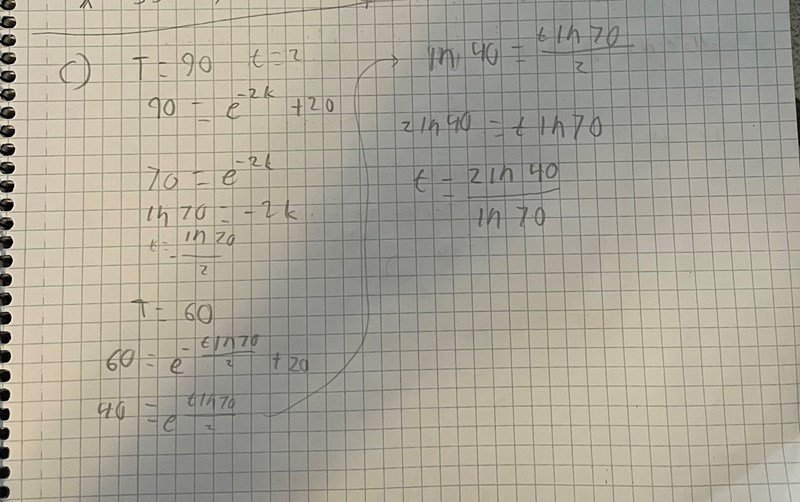 c) T = 90 t = 2
90 = e^{-2k} + 20
70 = e^{-2k}
ln 70 = -2k
T = 60
60 = e^{-\frac{t ln 70}{2}} + 20
40 = e^{\frac{t ln 70}{2}}
ln 40 = \frac{t ln 70}{2}
2 ln 40 = t ln 70
t = \frac{2 ln 40}{ln 70}